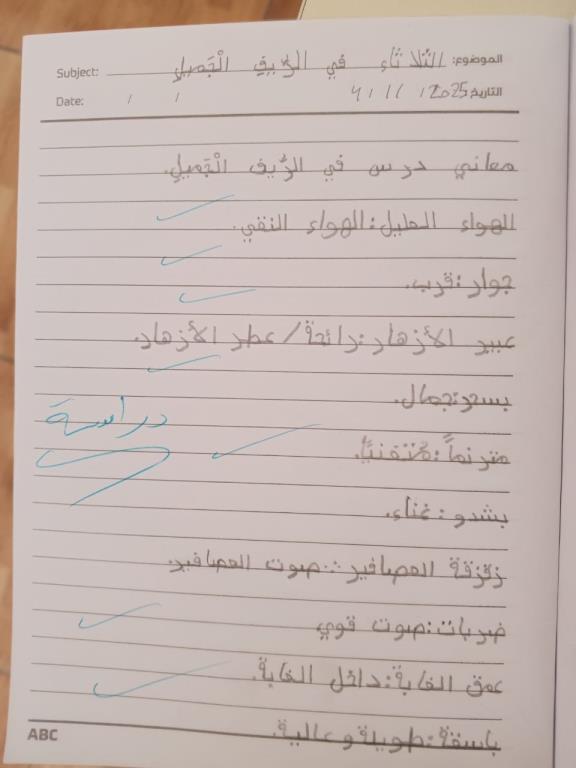 Subject: الموضوع: الثلاثاء في الرّيفِ الْجَميلِ
Date: / / التاريخ 2025/ 11/ 4
معاني درس في الرّيف الْجَميلِ.
الهواء العليل: الهواء النقي.
جوار: قرب.
عبير الأزهار: رائحة/ عطر الأزهار.
بسحر: جمال.
دراسة
مترنماً: مُتغنيًا.
بشدو: غناء.
زقزقة العصافير: صوت العصافير.
ضربات: صوت قوي
عمق الغابة: داخل الغابة.
باسقة: طويلة وعالية.
ABC